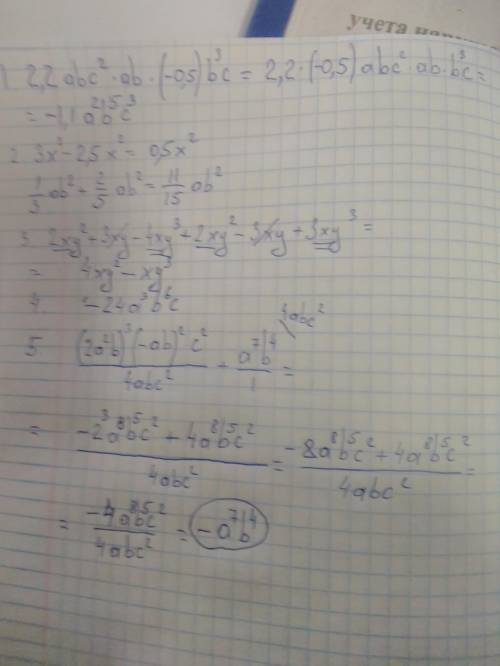 учета
1. 2,2 abc² · ab · (-0,5) b³c = 2,2 · (-0,5) abc² · ab · b³c =
= -1,1 a²b⁵c³
2. 3x² - 2,5x² = 0,5x²
1/3 ab² + 2/5 ab² = 11/15 ab²
3. 2xy² + 3xy - 4xy³ + 2xy² - 3xy + 3xy³ =
= 4xy² - xy³
4. -24a³b⁶c
5. (2a²b)³(-ab)²c² / 4abc² + a⁷b⁴ / 1 \ 4abc² =
= -2³a⁸b⁵c² + 4a⁸b⁵c² / 4abc² = -8a⁸b⁵c² + 4a⁸b⁵c² / 4abc² =
= -4a⁸b⁵c² / 4abc² = -a⁷b⁴